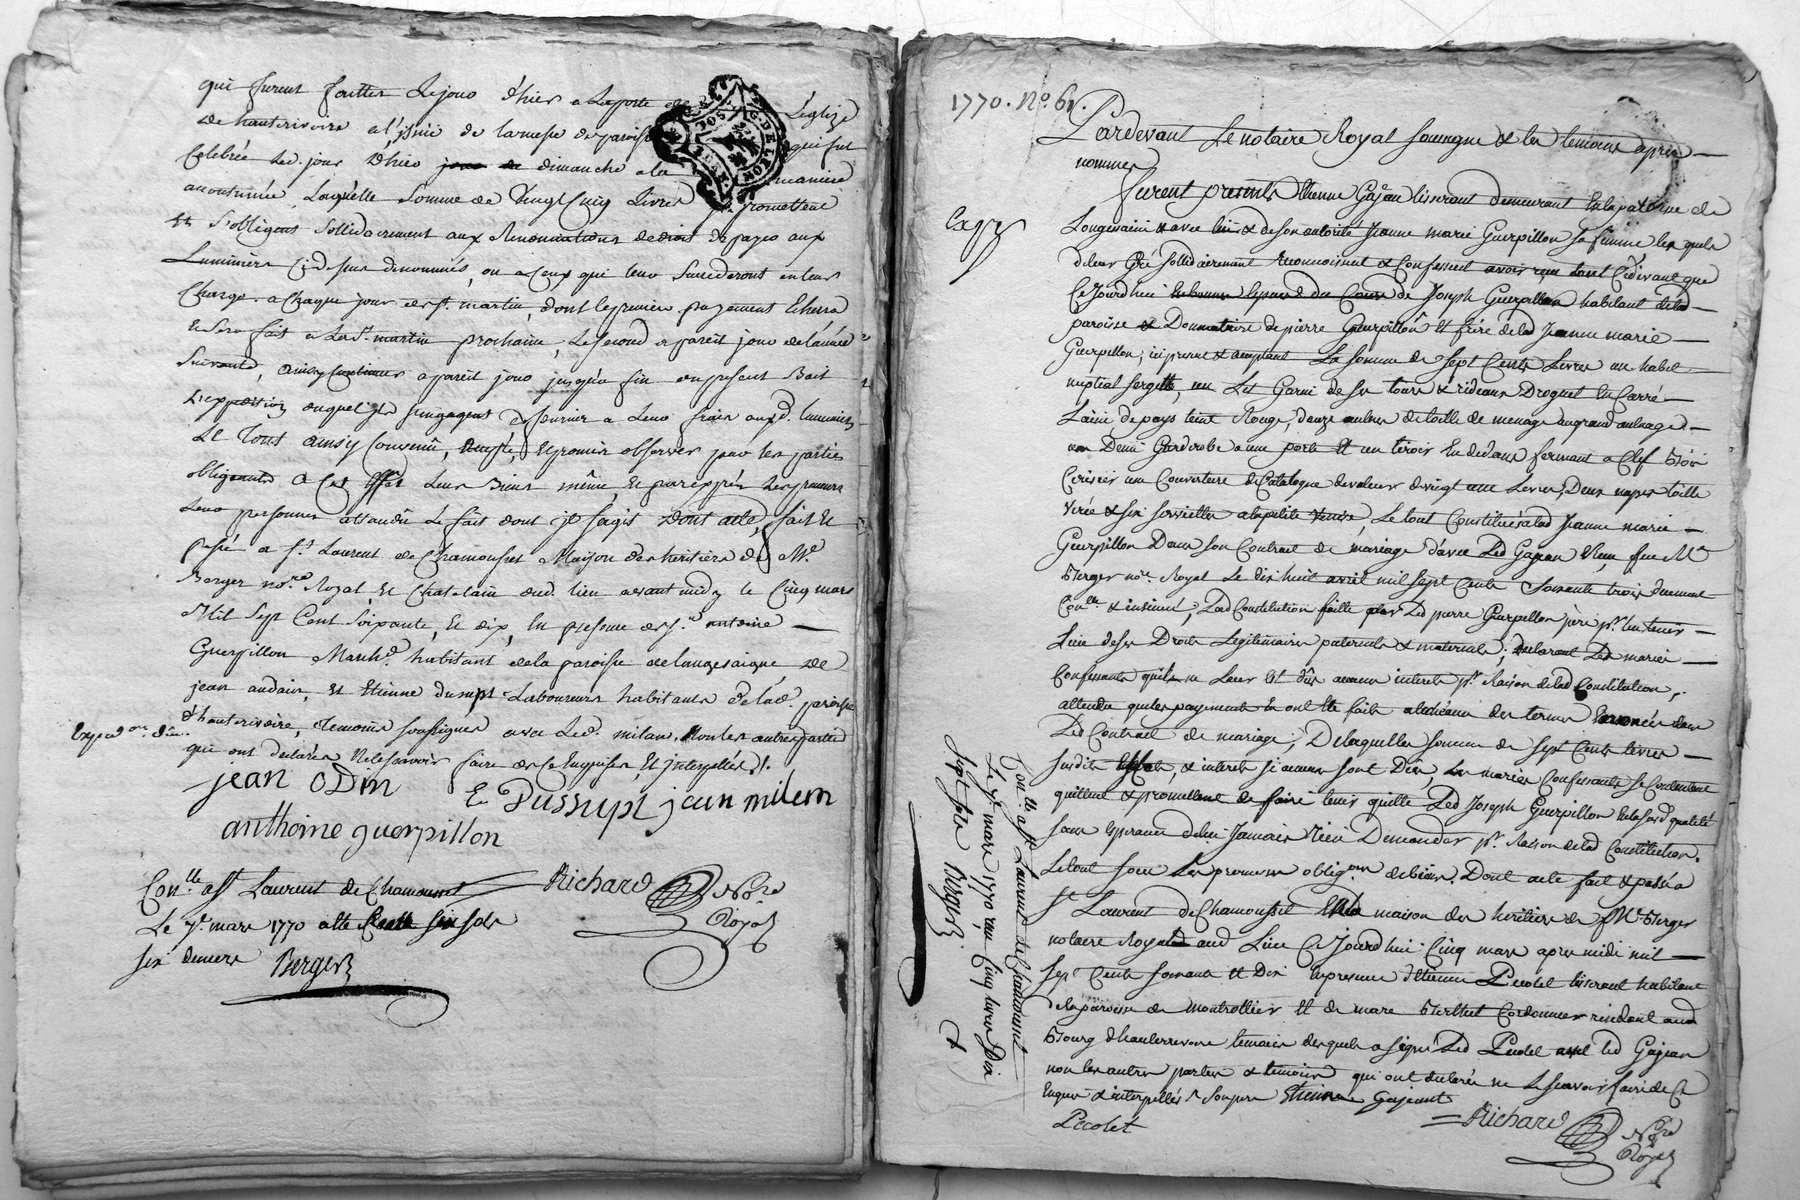 qui furent faittes Lejour d'hier a Laporte de L'eglize
de hauterivoire a l'issüe de lamesse de paroisse qui fut
Celebrée led. jour d'hier dimanche a la maniere
accoutumée, Laquelle Somme de Vingt Cinq Livres promettent
et s'obligent Sollidairement aux Renonciations de droit de payer aux
Luminiers Cy dessus denommés, ou a Ceux qui leur Succederont en leur
Charge. a Chaque jour de st. martin, dont le premier payement Echerra
Et Sera fait a La st. martin prochaine, Le Second a pareil jour de lannée
Suivante, ainsy Continuer a pareil jour jusqu'a fin du present Bail
L'expedition duquel ils s'engagent de fournir a leurs frais auxd. luminiers
Le Tout ainsy Convenû, accepté, Et promis observer par les parties
obligeants a Cet Effet Leurs Biens même, Et par exprés Les preneurs
Leurs personnes attandû Le fait dont il s'agit Dont acte, fait Et
passé a st. Laurent de Chamousset Maison des heritiers de Me.
Berger nore. Royal Et Chatelain dud. lieu avant midy le Cinq mars
Mil Sept Cent Soixante, Et dix, En presence de sr. antoine
Guerpillon March.d habitant de la paroisse de longesaigne, de
jean audain, et Etienne dussupt Laboureurs habitants de lad. paroisse
d'hauterivoire, temoins soussignés avec Led. milan, Non les autres parties
Expedon. due.
qui ont declarés ne le sçavoir faire de ce Enquises, Et interpellés ./.
jean Odin E Dussupt jean milem
anthoine guerpillon
Con.lle a st Laurent de Chamousset Richard Nore
Le 7e. mars 1770 Six sols Royal
six deniers Berger
1770. No. 61.
Pardevant Le notaire Royal soussigné & les temoins aprés
nommés
furent presents Etienne Gajean tisserant demeurant En la paroisse de
Longesaine & avec lui & de son autorité Jeanne marie Guerpillon sa femme les quels
de leur Gré sollidairement reconnoissent & Confessent avoir reçu tant Cy devant que
Ce Jourd'hui du Cours de Joseph Guerpillon habitant de lad
paroise & Donnataire de pierre Guerpillon Et frére de lad Jeanne marie
Guerpillon, ici present & acceptant La somme de sept Cents Livres un habit
nuptial sergette, un Lit Garni de son tour & rideaux Droguet En Carré
Laine de pays teint Rouge, douze aulnes de toille de menage au grand aulnage
un Demi Garderobe a une porte Et un tiroir En dedans fermant a Clef Bois
Cerisier une Couverture de Catalogne de valeur de vingt une Livres, Deux napes toille
& six serviettes a la petite Venise, Le tout Constitué a lad Jeanne marie
Guerpillon Dans son Contract de mariage d'avec Led Gajean Reçu feu Me
Berger nore. Royal Le dix huit avril mil sept Cents Soixante trois duement
Con.llé & insinué, Lad Constitution faitte par Led pierre Guerpillon père pr. lui tenir
Lieu de ses Droits Legitimaires paternels & maternels; declarant Les mariés
Confessants qu'il ne Leur Est dûs aucuns interets pr. Raison de lad Constitution,
attendu que les payements En ont Eté faits a la des termes Enoncés dans
Led Contract de mariage; De laquelle somme de sept Cents livres
susdits Effets, & interets si aucuns sont Dûs, Les mariés Confessants se Contentent
quittent & promettent de faire tenir quitte Led Joseph Guerpillon En la susd qualité
sans Esperance de lui Jamais Rien Demander pr. Raison de lad Constitution.
Le tout sous Les promesses oblig.ons de biens. Dont acte fait & passé a
St Laurent de Chamousset En la maison des heritiers de Me Berger
notaire Royal aud Lieu Ce Jourd'hui Cinq mars aprés midi mil
sept Cents soixante Et Dix En presence d'Etienne Pecolet tisserant habitant
de la paroisse de montrottier Et de marc Berthet Cordonnier residant aud
Bourg d'hauterivoire temoins des quels a signé Led Pecolet avec led Gajean
non les autres parties & temoins qui ont declarés ne Le sçavoir faire de Ce
Enquis & interpellés Etienne Gajeant
Pecolet Richard Nore
Royal
Con.lle a st Laurent de Chamousset
Le 7e. mars 1770 reçu Cinq livres Dix
sept sols Berger